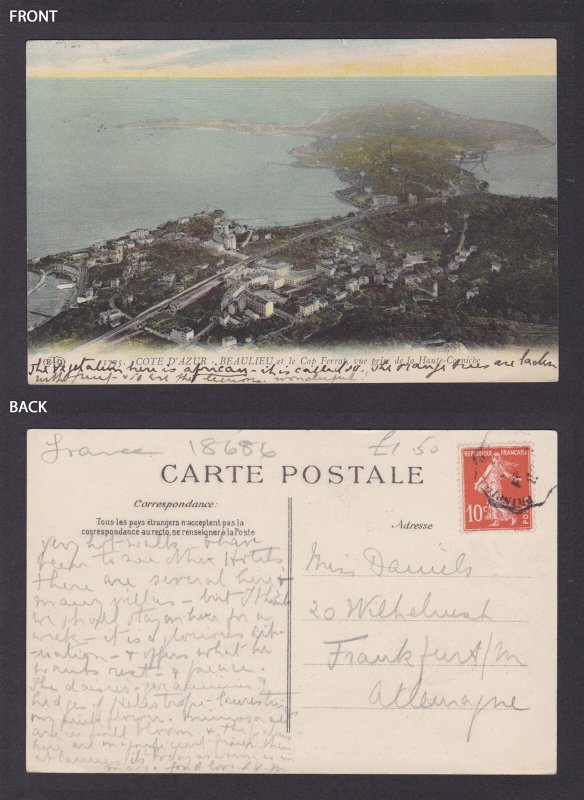 FRONT
1725 - COTE D'AZUR - BEAULIEU et le Cap Ferrat, vue prise de la Haute-Corniche
The vegetation here is african - it is called so. The orange trees are laden
with fruit - so are the lemons. wonderful.
BACK
France 18686 £1.50
CARTE POSTALE
Correspondance:
Tous les pays étrangers n'acceptent pas la
correspondance au recto, se renseigner à la Poste
Adresse
REPUBLIQUE FRANÇAISE
10c
very hot walk & have
been to see other Hotels
There are several here &
many villas - but I think
we shall stay on here for a
week - it is a glorious sit-
uation - & offers what he
wants rest - & peace.
The daisies - geraniums
hedges of heliotrope -
my flowers - mimosa
are in full bloom & the
here are magnificent
at Cannes, is today as warm as in
may - fond love
Miss Daniels
20 Wilhelmst
Frankfurt/M
Allemagne